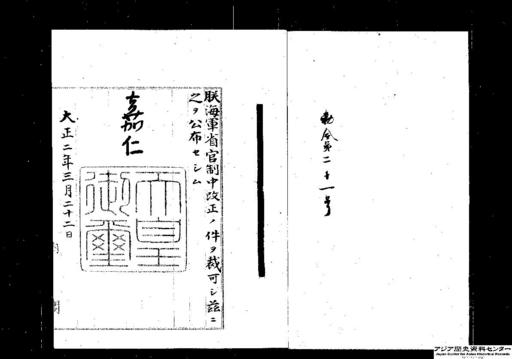 勅令第二十一号
朕海軍省官制中改正ノ件ヲ裁可シ茲ニ
之ヲ公布セシム
嘉仁
天皇御璽
大正二年三月二十二日
アジア歴史資料センター
Japan Center for Asian Historical Records